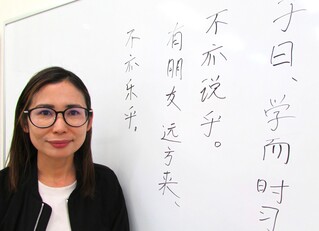 子曰、学而时习
不亦说乎。
有朋友远方来、
不亦乐乎。